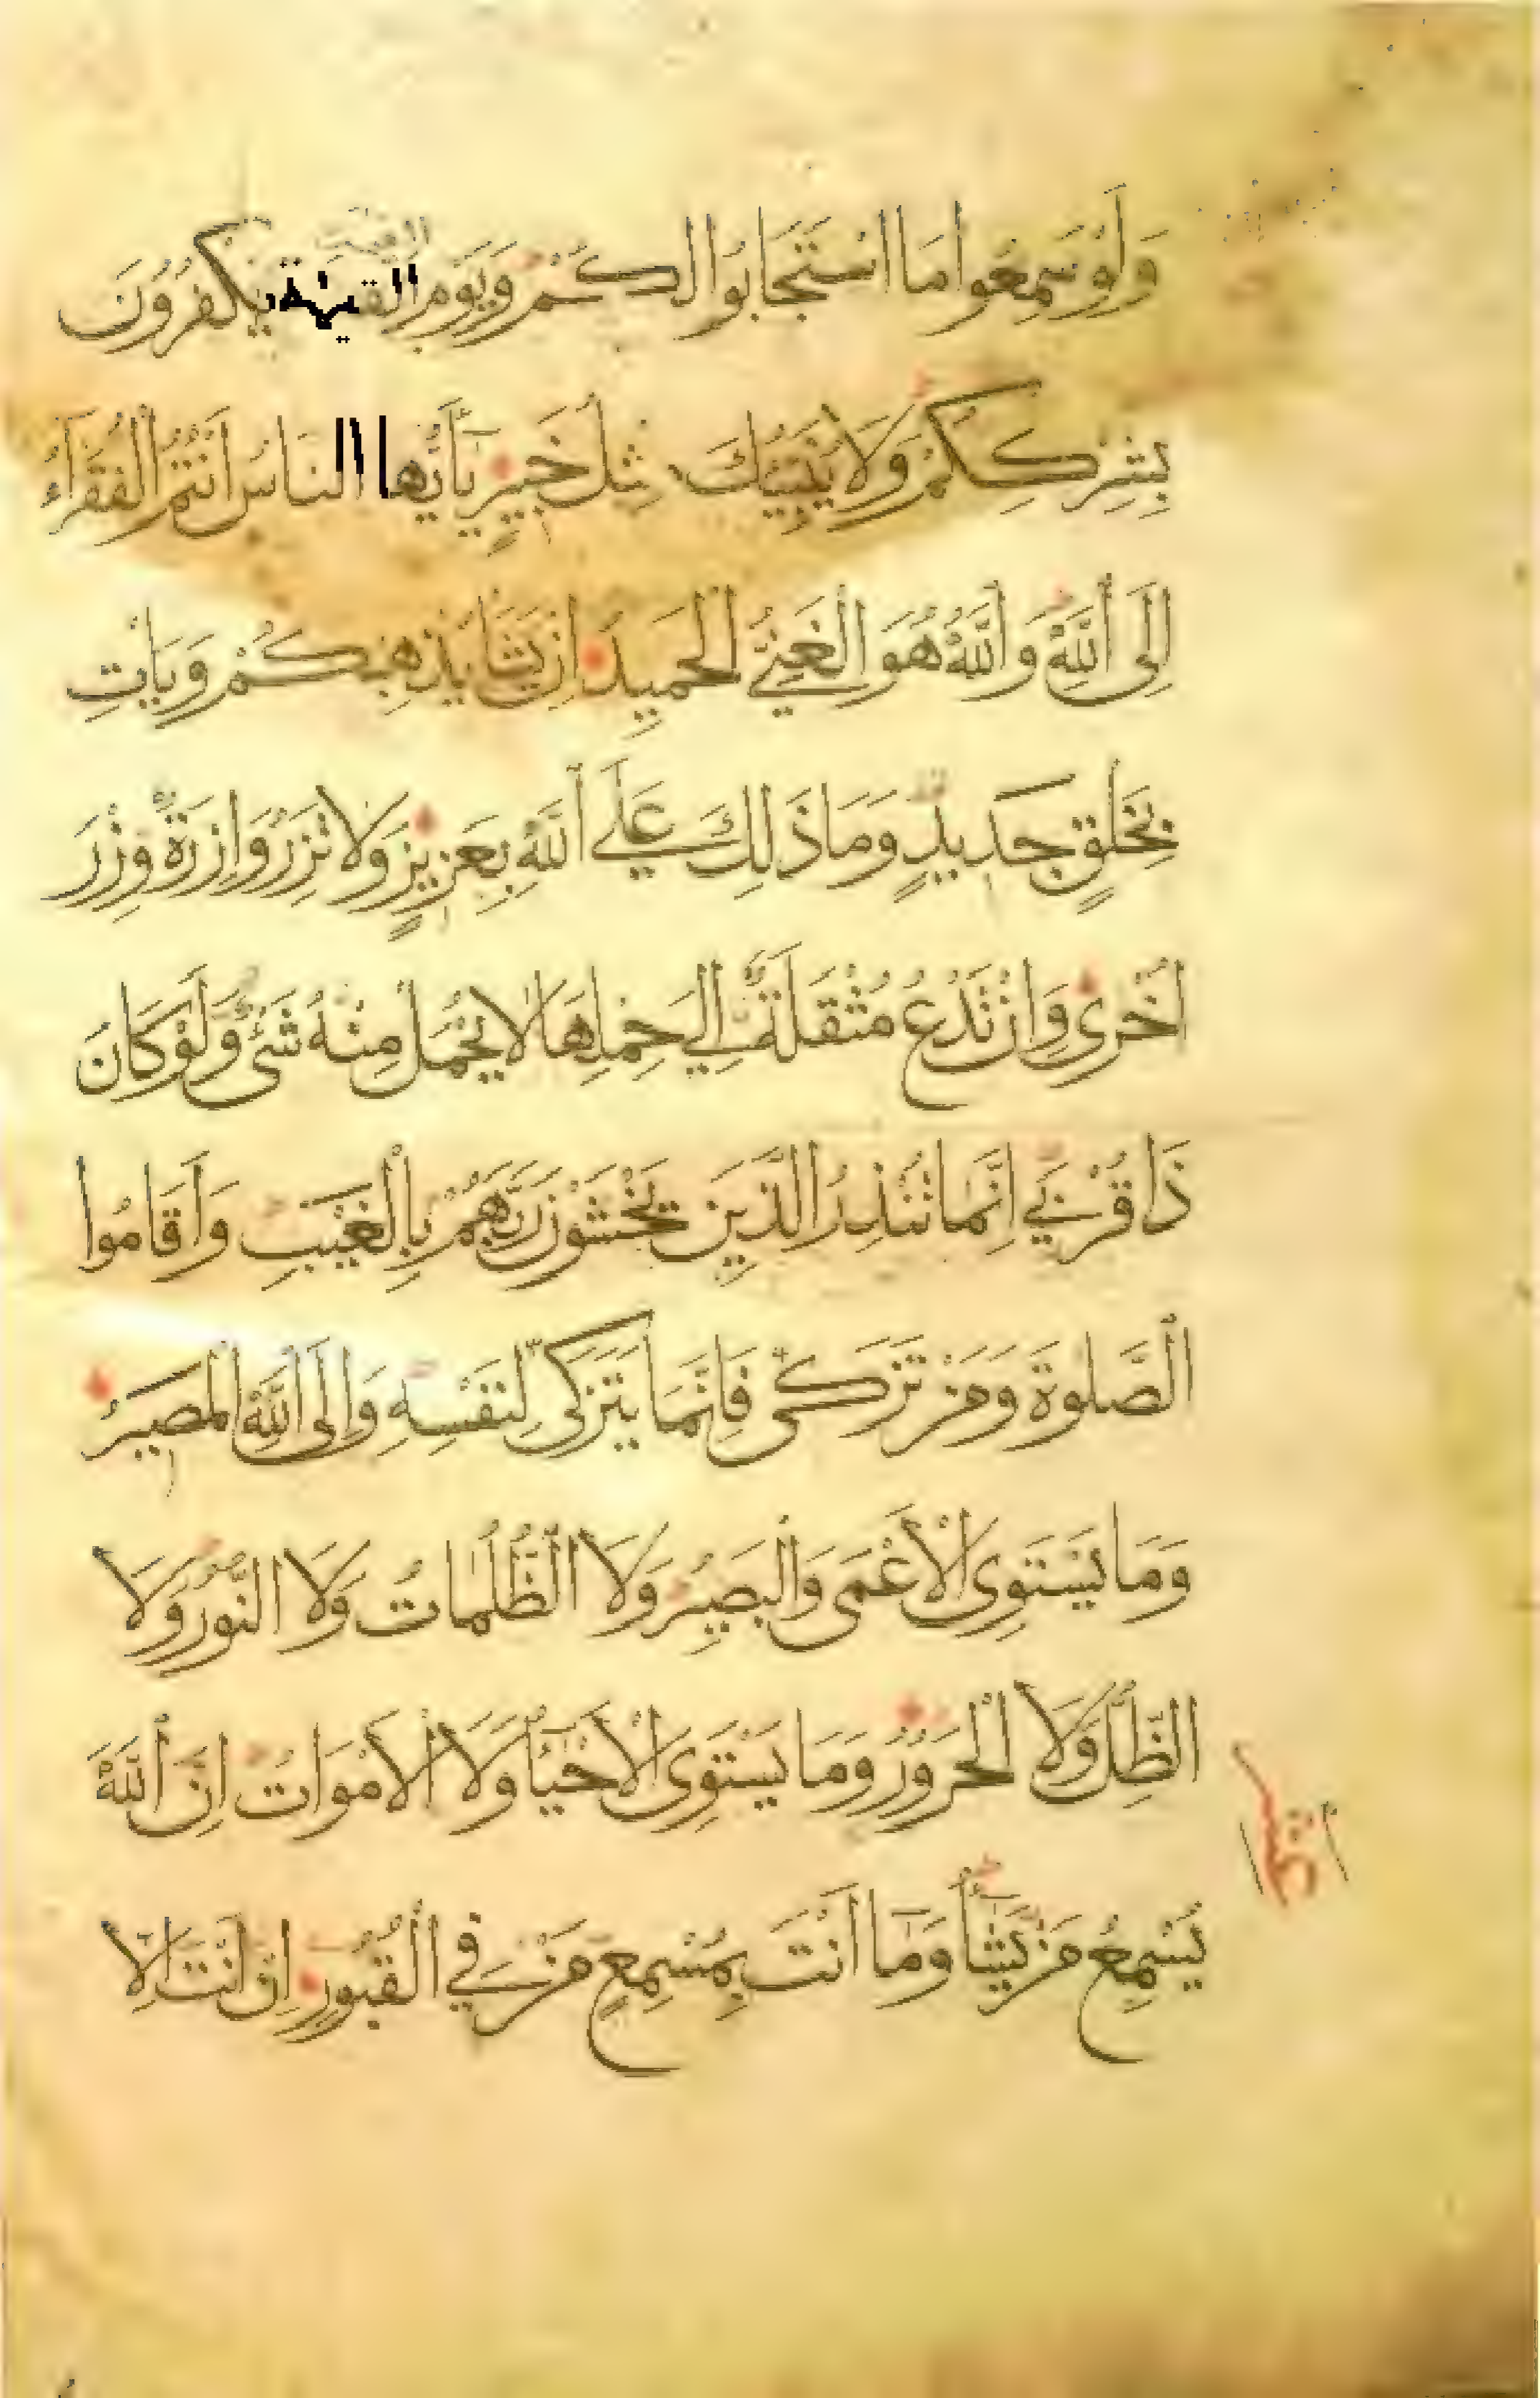 وَلَوْ سَمِعُوا مَا اسْتَجَابُوا لَكُمْ وَيَوْمَ الْقِيٰمَةِ يَكْفُرُونَ
بِشِرْكِكُمْ وَلَا يُنَبِّئُكَ مِثْلُ خَبِيرٍ يَأَيُّهَا النَّاسُ أَنْتُمُ الْفُقَرَاءُ
إِلَى اللَّهِ وَاللَّهُ هُوَ الْغَنِيُّ الْحَمِيدُ إِنْ يَشَأْ يُذْهِبْكُمْ وَيَأْتِ
بِخَلْقٍ جَدِيدٍ وَمَا ذَلِكَ عَلَى اللَّهِ بِعَزِيزٍ وَلَا تَزِرُ وَازِرَةٌ وِزْرَ
أُخْرَى وَإِنْ تَدْعُ مُثْقَلَةٌ إِلَى حِمْلِهَا لَا يُحْمَلْ مِنْهُ شَيْءٌ وَلَوْ كَانَ
ذَا قُرْبَى إِنَّمَا تُنْذِرُ الَّذِينَ يَخْشَوْنَ رَبَّهُمْ بِالْغَيْبِ وَأَقَامُوا
الصَّلٰوةَ وَمَنْ تَزَكَّى فَإِنَّمَا يَتَزَكَّى لِنَفْسِهِ وَإِلَى اللَّهِ الْمَصِيرُ
وَمَا يَسْتَوِى الْأَعْمَى وَالْبَصِيرُ وَلَا الظُّلُمَاتُ وَلَا النُّورُ وَلَا
الظِّلُّ وَلَا الْحَرُورُ وَمَا يَسْتَوِى الْأَحْيَآءُ وَلَا الْأَمْوَاتُ إِنَّ اللَّهَ
يُسْمِعُ مَنْ يَشَآءُ وَمَآ أَنْتَ بِمُسْمِعٍ مَنْ فِي الْقُبُورِ إِنْ أَنْتَ إِلَّا